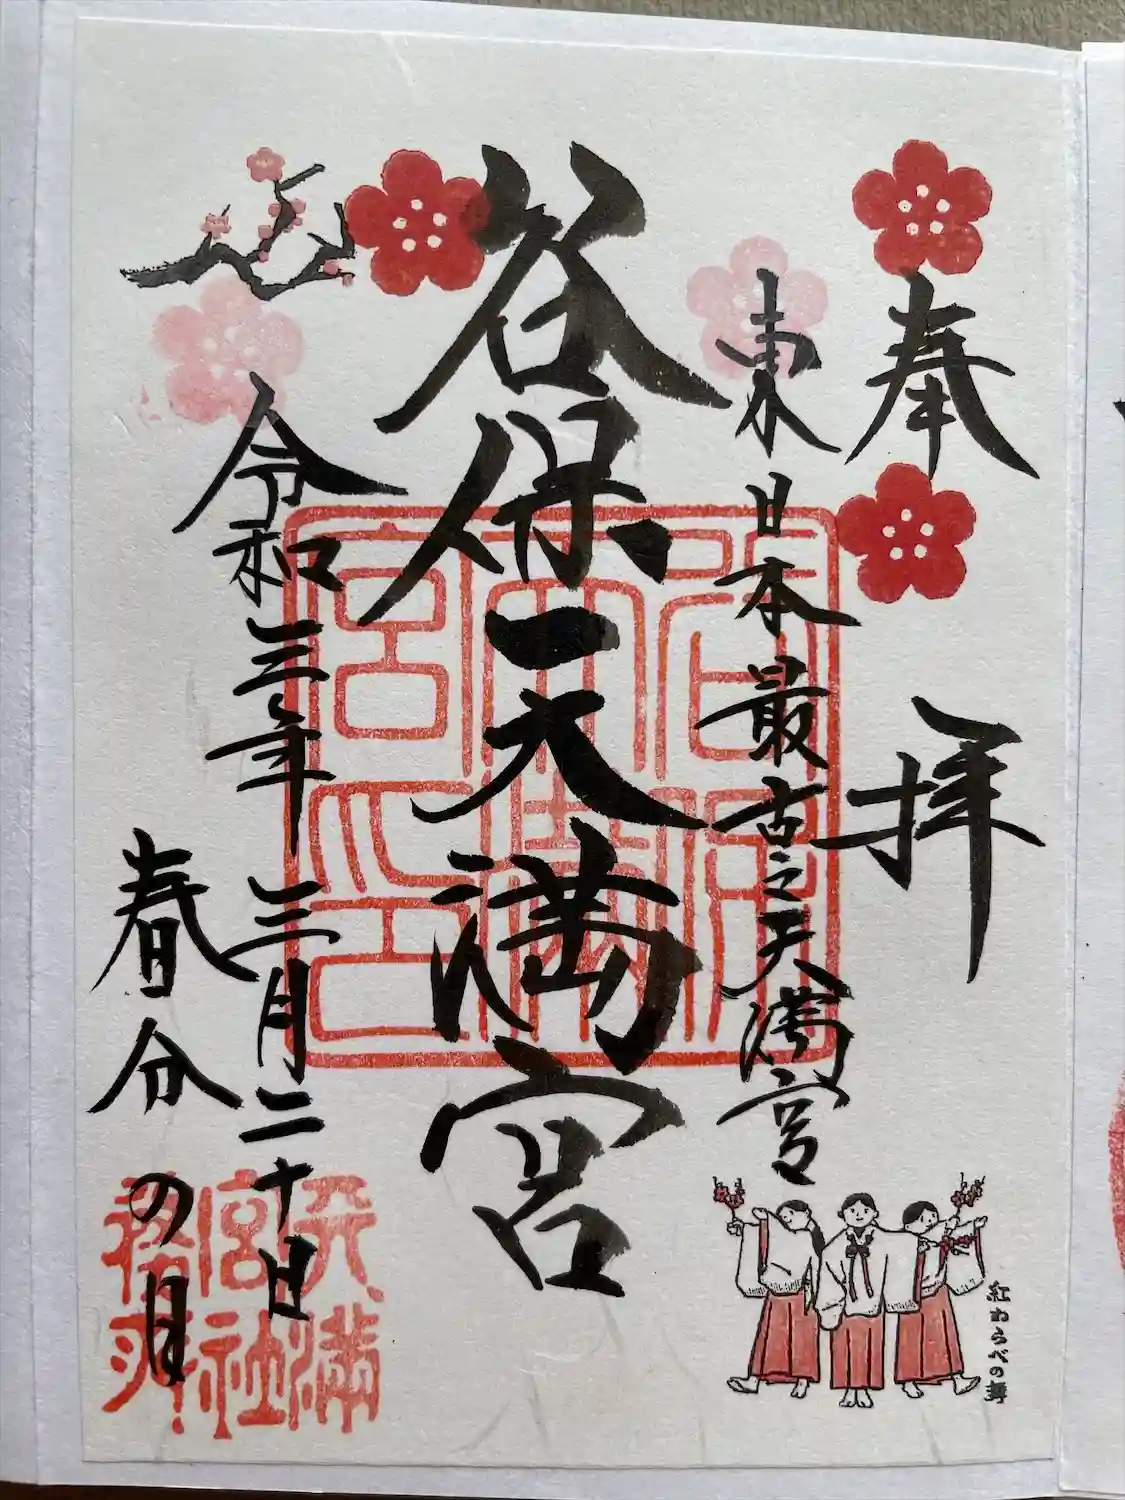 奉拝
東日本最古之天満宮
谷保天満宮
令和三年三月二十日
春分の日
紅わらべの舞
天満宮社務所